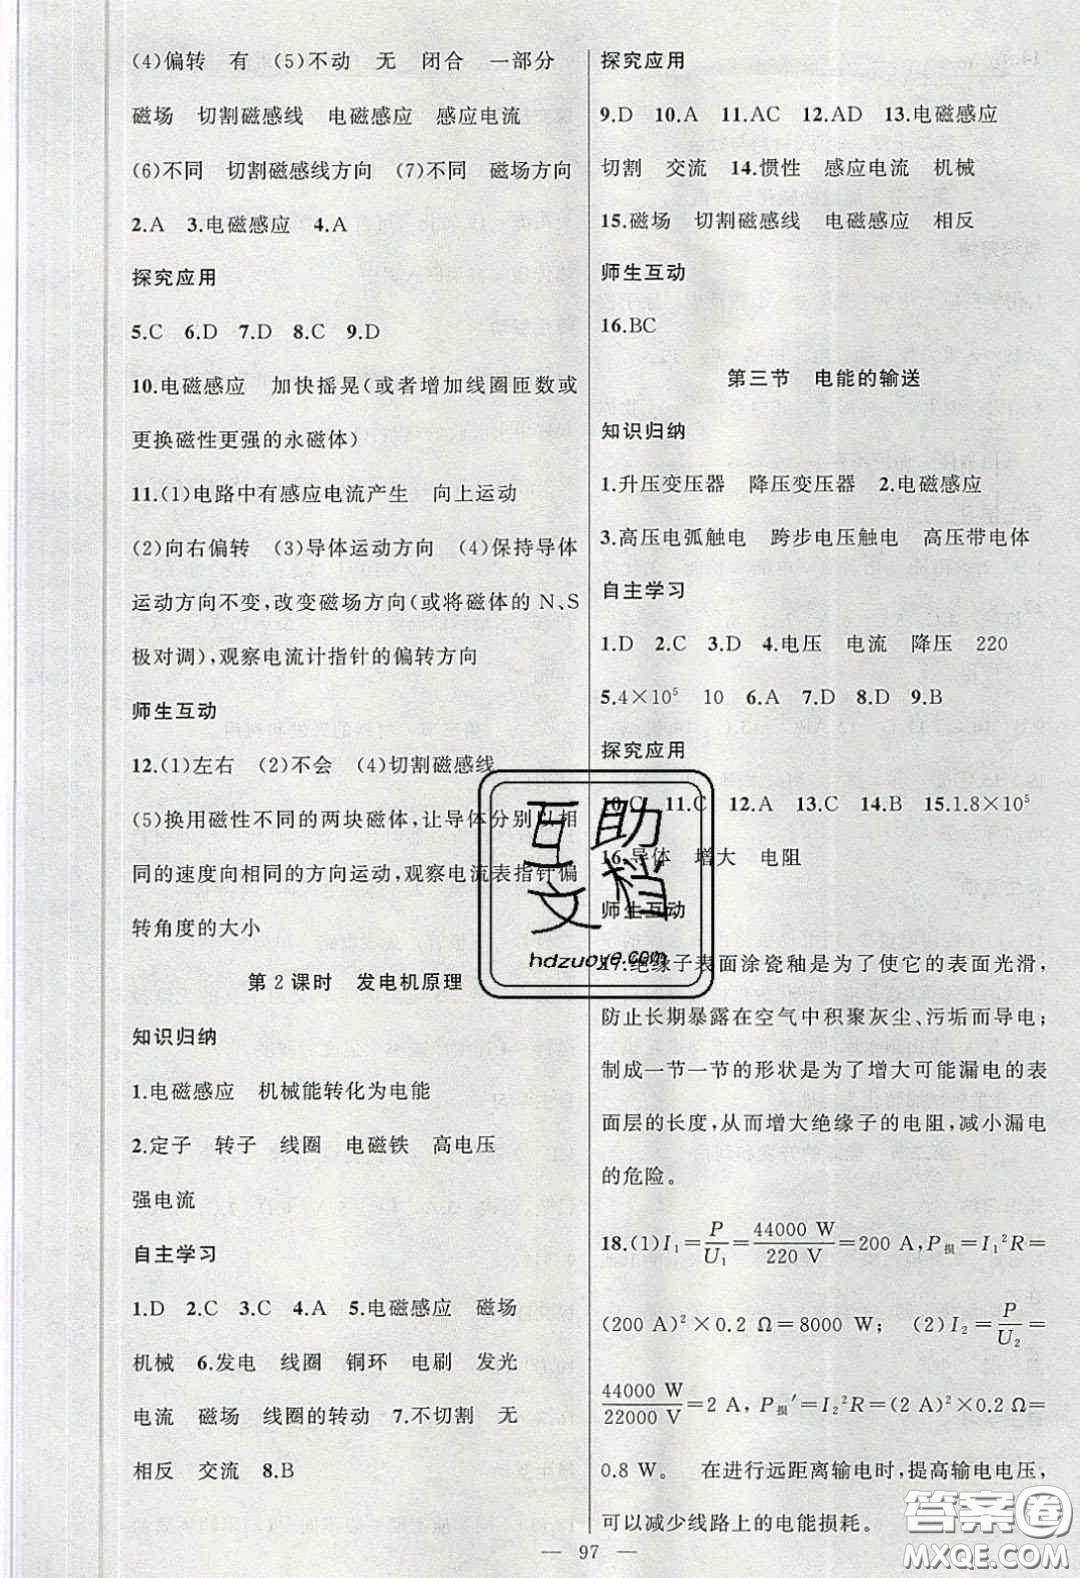 (4)偏转 有 (5)不动 无 闭合 一部分
磁场 切割磁感线 电磁感应 感应电流
(6)不同 切割磁感线方向 (7)不同 磁场方向
2.A 3.电磁感应 4.A
探究应用
5.C 6.D 7.D 8.C 9.D
10.电磁感应 加快摇晃(或者增加线圈匝数或
更换磁性更强的永磁体)
11.(1)电路中有感应电流产生 向上运动
(2)向右偏转 (3)导体运动方向 (4)保持导体
运动方向不变,改变磁场方向(或将磁体的 N、S
极对调),观察电流计指针的偏转方向
师生互动
12.(1)左右 (2)不会 (4)切割磁感线
(5)换用磁性不同的两块磁体,让导体分别以相
同的速度向相同的方向运动,观察电流表指针偏
转角度的大小
第2课时 发电机原理
知识归纳
1.电磁感应 机械能转化为电能
2.定子 转子 线圈 电磁铁 高电压
强电流
自主学习
1.D 2.C 3.C 4.A 5.电磁感应 磁场
机械 6.发电 线圈 铜环 电刷 发光
电流 磁场 线圈的转动 7.不切割 无
相反 交流 8.B
探究应用
9.D 10.A 11.AC 12.AD 13.电磁感应
切割 交流 14.惯性 感应电流 机械
15.磁场 切割磁感线 电磁感应 相反
师生互动
16.BC
第三节 电能的输送
知识归纳
1.升压变压器 降压变压器 2.电磁感应
3.高压电弧触电 跨步电压触电 高压带电体
自主学习
1.D 2.C 3.D 4.电压 电流 降压 220
5.4×10⁵ 10 6.A 7.D 8.D 9.B
探究应用
10.C 11.C 12.A 13.C 14.B 15.1.8×10⁵
16.导体 增大 电阻
师生互动
17.绝缘子表面涂瓷釉是为了使它的表面光滑,
防止长期暴露在空气中积聚灰尘、污垢而导电;
制成一节一节的形状是为了增大可能漏电的表
面层的长度,从而增大绝缘子的电阻,减小漏电
的危险。
18.(1)I₁=P/U₁=44000 W/220 V=200 A,P损=I₁²R=
(200 A)²×0.2 Ω=8000 W; (2)I₂=P/U₂=
44000 W/22000 V=2 A,P损′=I₂²R=(2 A)²×0.2 Ω=
0.8 W。 在进行远距离输电时,提高输电电压,
可以减少线路上的电能损耗。
— 97 —
互助
文档
hdzuoye.com
答案圈
MXQE.COM